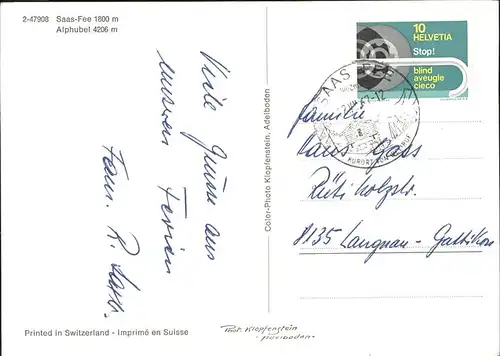 2-47908 Saas-Fee 1800 m
Alphubel 4206 m
Viele Grüsse aus
unseren Ferien
Fam. R.
Color-Photo Klopfenstein, Adelboden
10
HELVETIA
Stop!
blind
aveugle
cieco
SAAS-FEE
Familie
Hans Gass
Rütiholzstr.
8135 Langnau-Gattikon
Printed in Switzerland - Imprimé en Suisse
Phot. Klopfenstein
- Adelboden -